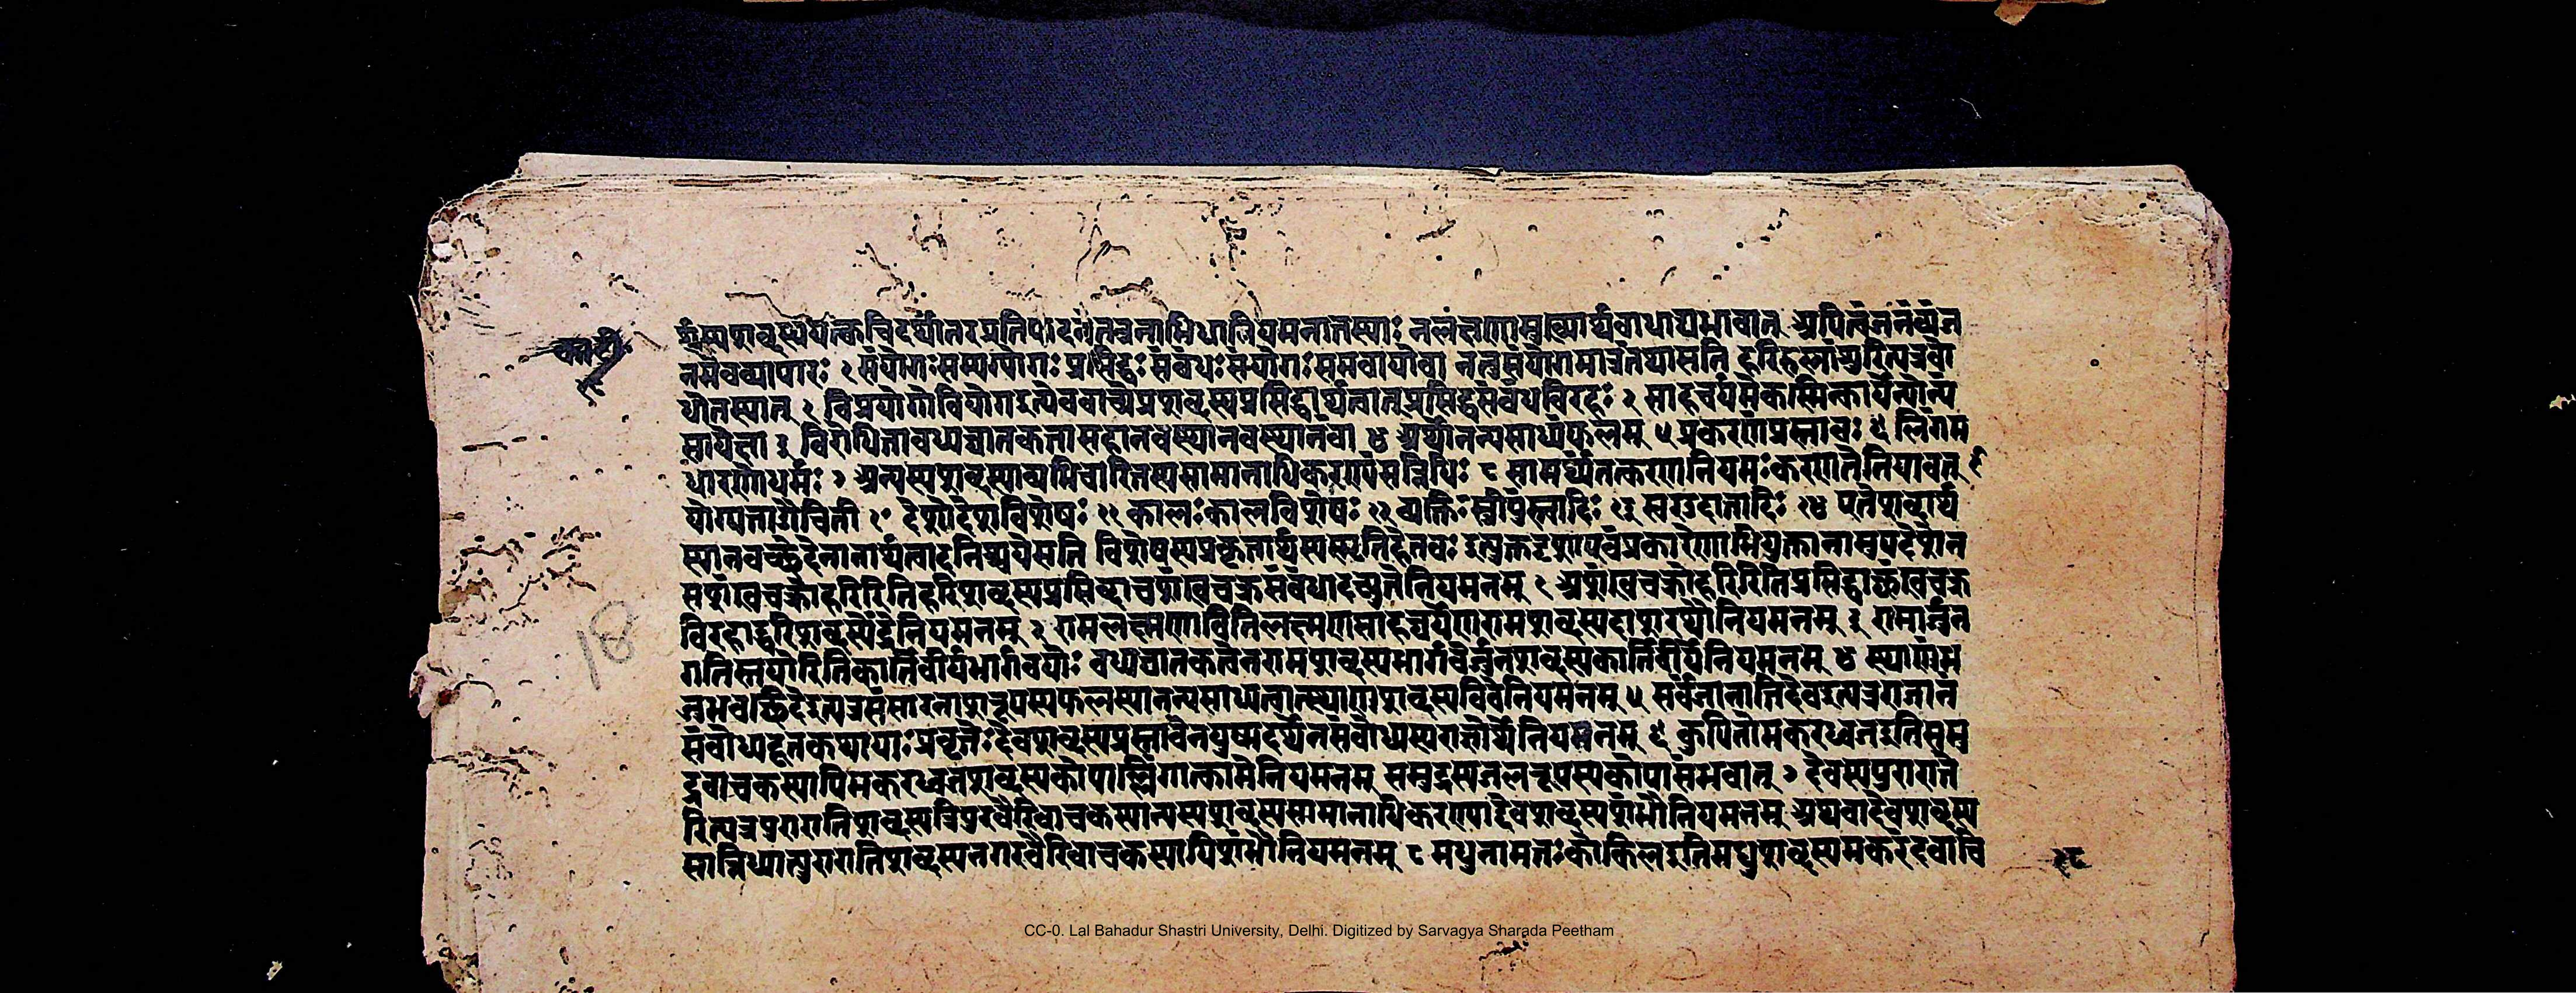 र्थस्यशब्दस्ययत्क्वचिदर्थांतरप्रतिपादनंतत्रनाभिधानियमनात्तस्याः नलक्षणामुख्यार्थबाधाद्यभावात् अपित्वंजनंव्यंज
नमेवव्यापारः १ संयोगःसम्यग्योगः प्रसिद्धःसंबंधःसंयोगःसमवायोवा नतुसंयोगमात्रंतथासति हरिर्हस्तांशुरित्यत्रबो
धोनस्यात् १ विप्रयोगोवियोगइत्येववाच्येप्रशब्दस्यप्रसिद्धार्थत्वात्प्रसिद्धसंबंधविरहः २ साहचर्यमेकस्मिन्कार्येन्योन्य
सापेक्षता ३ विरोधितावध्यघातकतासहानवस्थानवस्थानंवा ४ अर्थोनन्यसाध्यंफलम् ५ प्रकरणंप्रस्तावः ६ लिंगम
धारणोधर्मः ७ अन्यस्यशब्दस्याव्यभिचारितस्यसामानाधिकरण्यंसन्निधिः ८ सामर्थ्यंतत्करणनियमःकरणतेतियावत् ९
योग्यताऔचिती १० देशोदेशविशेषः ११ कालःकालविशेषः १२ व्यक्तिःस्त्रीपुंस्त्वादिः १३ स्वरउदात्तादिः १४ एतेशब्दार्थ
स्यानवच्छेदेनानार्थत्वादनिश्चयेसति विशेषस्यप्रकृतार्थस्यस्मृतिहेतवः इत्युक्तदृशाएवंप्रकारेणाभियुक्तानामुपदेशेन
सशंखचक्रोहरिरितिहरिशब्दस्यप्रसिद्धाचशंखचक्रसंबंधादच्युतेनियमनम् १ अशंखचक्रोहरिरितिप्रसिद्धाच्छंखचक्र
विरहाद्धरिशब्दस्येंद्रेनियमनम् २ रामलक्ष्मणावितिलक्ष्मणसाहचर्येणरामशब्दस्यदाशरथौनियमनम् ३ रामार्जुन
गतिस्तयोरितिकार्तवीर्यभार्गवयोः वध्यघातकत्वेनरामशब्दस्यभार्गवेर्जुनशब्दस्यकार्तवीर्येनियमनम् ४ स्थाणुंभ
जभवच्छिदेइत्यत्रसंसारनाशरूपस्यफलस्यानन्यसाध्यत्वात्स्थाणुशब्दस्यशिवेनियमनम् ५ सर्वंजानातिदेवइत्यत्रराजानं
संबोध्यदूतकथायाःप्रवृत्तेःदेवशब्दस्यप्रस्तावेनयुष्मदर्थेनसंबोध्यस्यराज्ञोर्थेनियमनम् ६ कुपितोमकरध्वजइतिसमु
द्रवाचकस्यापिमकरध्वजशब्दस्यकोपाल्लिंगात्कामेनियमनम् समुद्रस्यजलरूपस्यकोपासंभवात् ७ देवस्यपुराराते
रित्यत्रपुरारातिशब्दस्यत्रिपुरवैरिवाचकस्यान्यस्यशब्दस्यसामानाधिकरण्याद्देवशब्दस्यशंभौनियमनम् अथवादेवशब्दस्य
सान्निध्यात्पुरारातिशब्दस्यनगरवैरिवाचकस्यापिशंभौनियमनम् ८ मधुनामत्तःकोकिलइतिमधुशब्दस्यमकरंदवाचि
१८
18
CC-0. Lal Bahadur Shastri University, Delhi. Digitized by Sarvagya Sharada Peetham